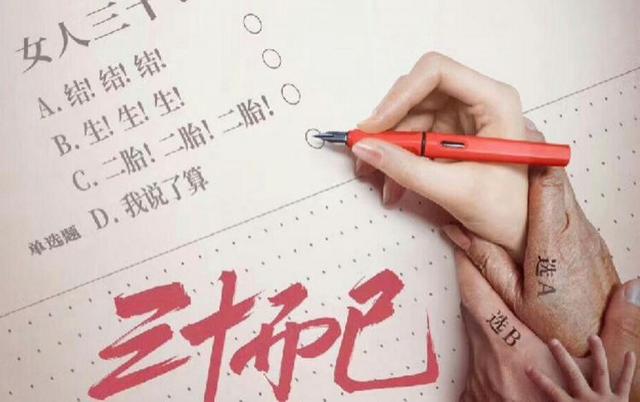 女人三十
A. 结! 结! 结!
B. 生! 生! 生!
C. 二胎! 二胎! 二胎!
单选题 D. 我说了算
选A
选B
三十而已